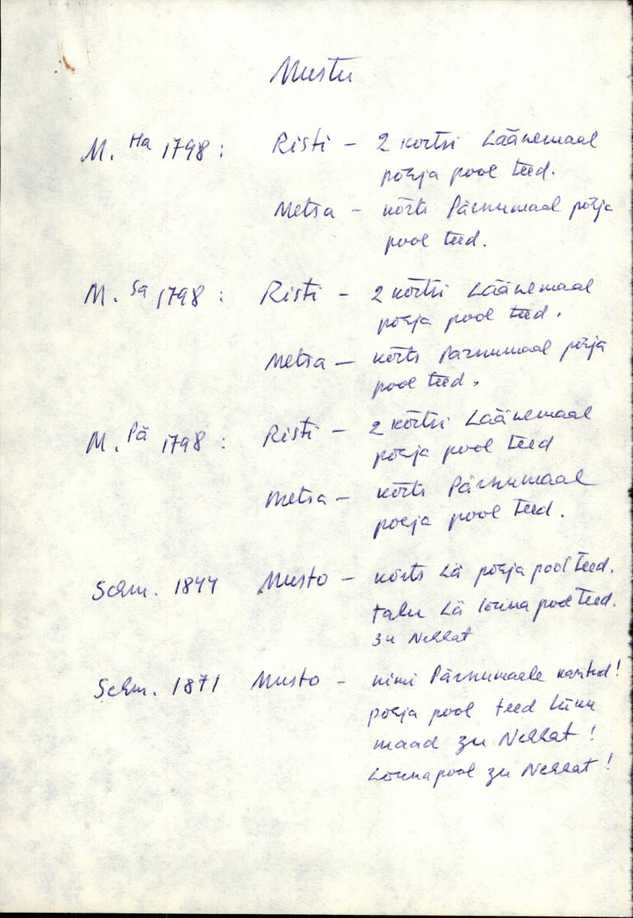 Mustu
M. Ha 1798 : Risti – 2 kõrtsi Läänemaal
põhja pool teed.
Metsa – kõrts Pärnumaal põhja
pool teed.
M. Sa 1798 : Risti – 2 kõrtsi Läänemaal
põhja pool teed.
Metsa – kõrts Pärnumaal põhja
pool teed.
M. Pä 1798 : Risti – 2 kõrtsi Läänemaal
põhja pool teed
Metsa – kõrts Pärnumaal
põhja pool teed.
Schm. 1844 Musto – kõrts Lä põhja pool teed.
talu Lä lõuna pool teed.
zu Nehhat
Schm. 1871 Musto – nimi Pärnumaale kantud!
põhja pool teed
maad zu Nehhat!
Lõuna pool zu Nehhat!